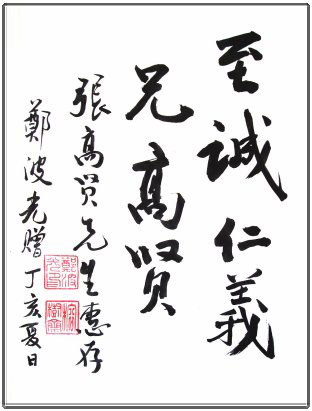 至誠仁義
见高贤
張高贤先生惠存
鄭波光赠丁亥夏日